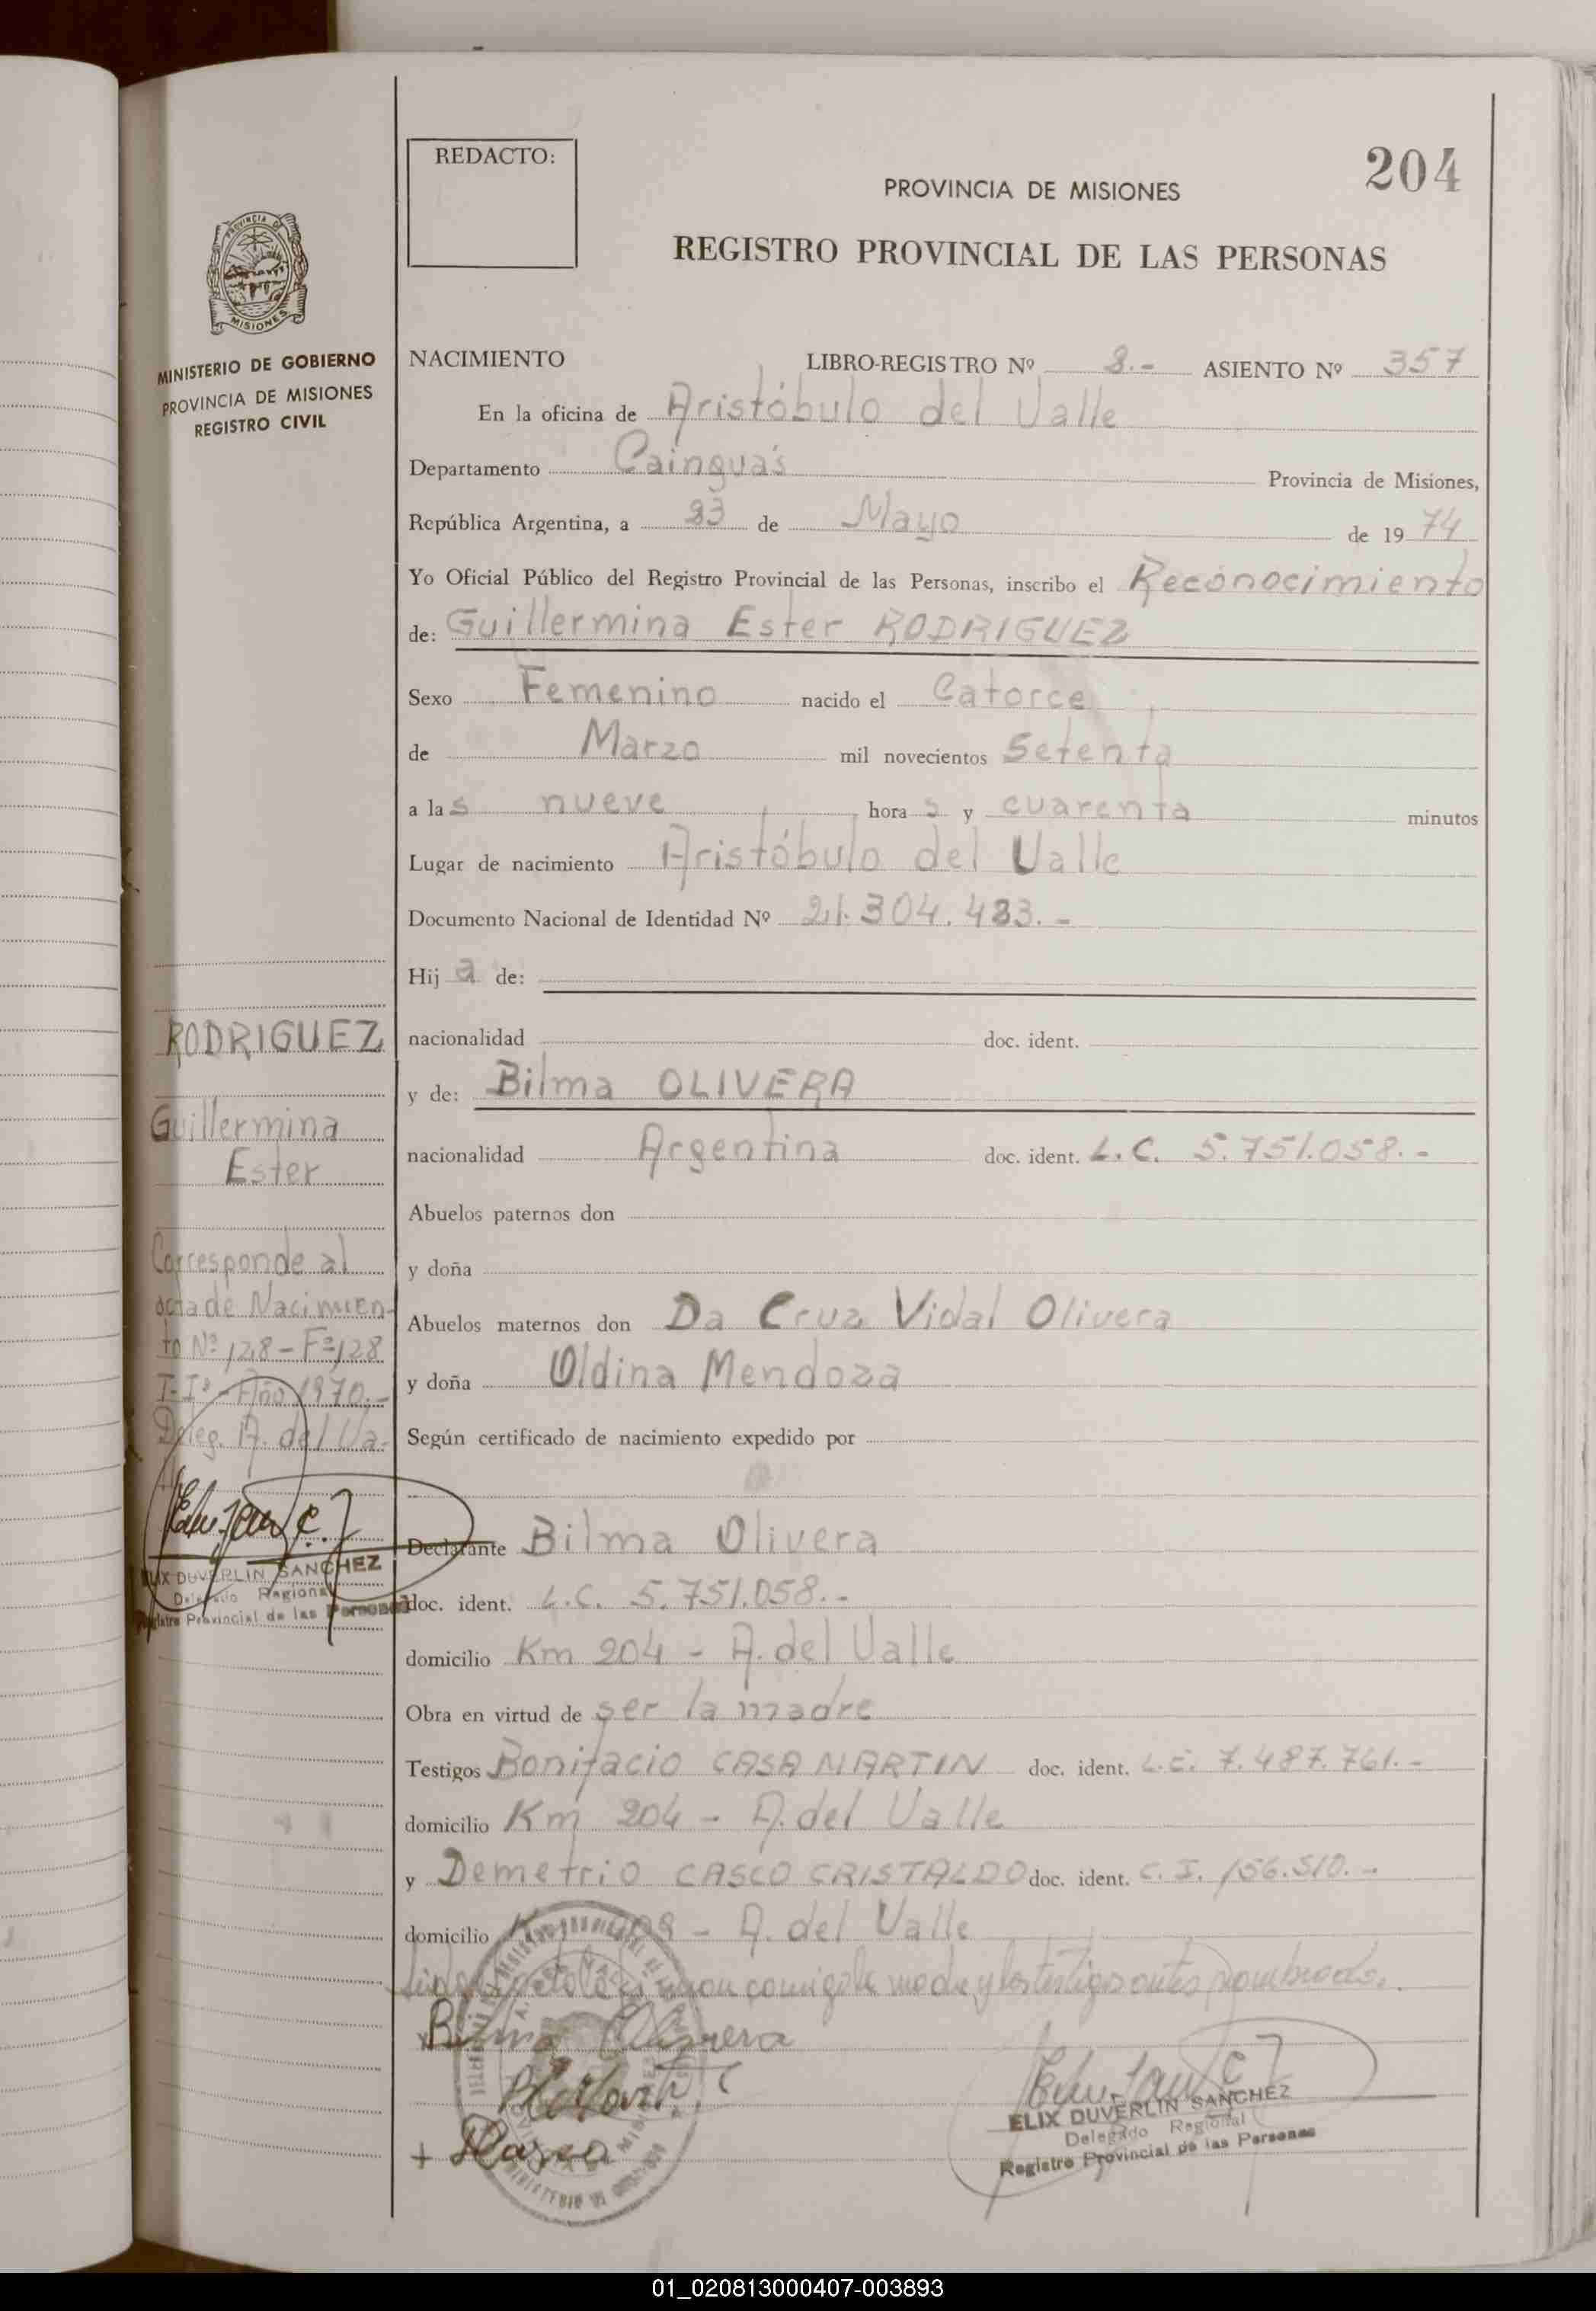 REDACTO:
204
PROVINCIA DE MISIONES
REGISTRO PROVINCIAL DE LAS PERSONAS
PROVINCIA DE
MISIONES
MINISTERIO DE GOBIERNO
PROVINCIA DE MISIONES
REGISTRO CIVIL
NACIMIENTO LIBRO-REGISTRO Nº 8.- ASIENTO Nº 357
En la oficina de Aristóbulo del Valle
Departamento Cainguás Provincia de Misiones,
República Argentina, a 23 de Mayo de 1974
Yo Oficial Público del Registro Provincial de las Personas, inscribo el Reconocimiento
de: Guillermina Ester RODRIGUEZ
Sexo Femenino nacido el Catorce
de Marzo mil novecientos Setenta
a las nueve horas y cuarenta minutos
Lugar de nacimiento Aristóbulo del Valle
Documento Nacional de Identidad Nº 21.304.483.-
Hija de:
nacionalidad doc. ident.
y de: Bilma OLIVERA
nacionalidad Argentina doc. ident. L.C. 5.751.058.-
Abuelos paternos don
y doña
Abuelos maternos don Da Cruz Vidal Olivera
y doña Oldina Mendoza
Según certificado de nacimiento expedido por
Declarante Bilma Olivera
doc. ident. L.C. 5.751.058.-
domicilio Km 204 - A. del Valle
Obra en virtud de ser la madre
Testigos Bonifacio CASA MARTIN doc. ident. L.E. 7.487.761.-
domicilio Km 204 - A. del Valle
y Demetrio CASCO CRISTALDO doc. ident. C.I. 156.510.-
domicilio - A. del Valle
conmigo la madre y los testigos antes nombrados.
Bilma Olivera
Casco
ELIX DUVERLIN SANCHEZ
Delegado Regional
Registro Provincial de las Personas
RODRIGUEZ
Guillermina
Ester
Corresponde al
acta de Nacimien-
to Nº 128 - Fº 128
T-Iº - Año 1970.-
Deleg. A. del Va-
ELIX DUVERLIN SANCHEZ
Delegado Regional
Registro Provincial de las Personas
01_020813000407-003893